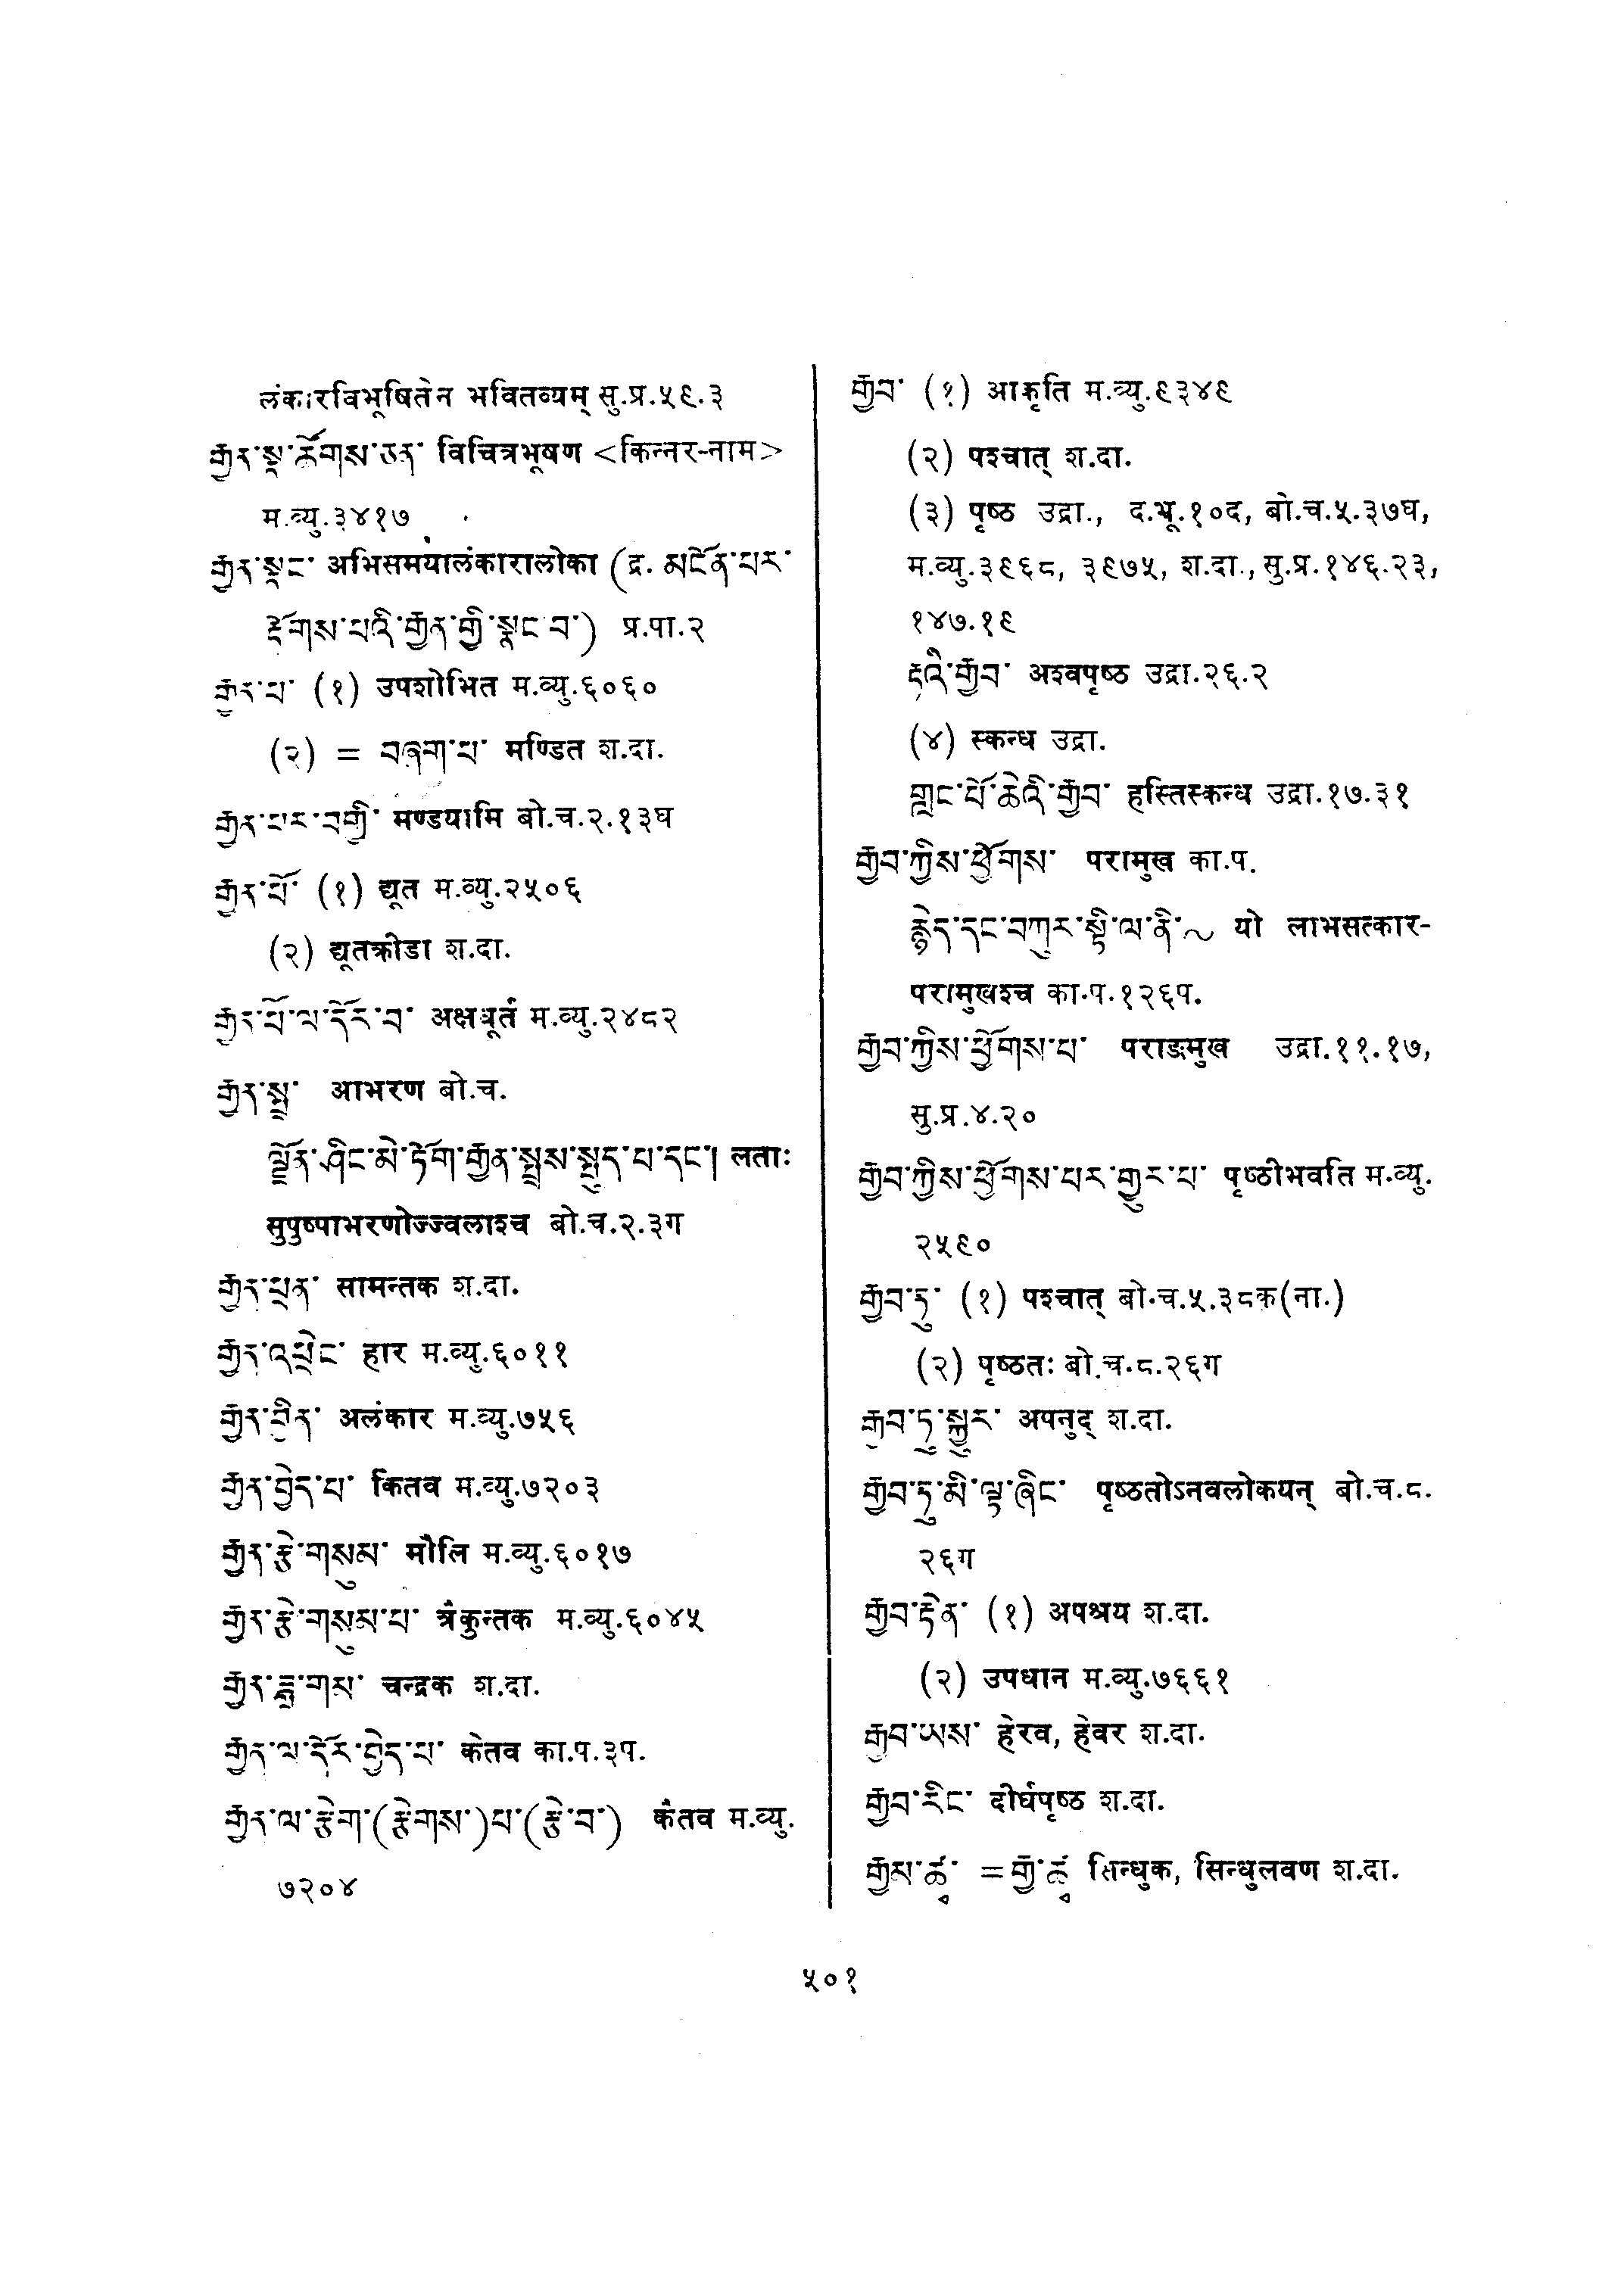 लंकारविभूषितेन भवितव्यम् सु.प्र.५९.३
རྒྱན་སྣ་ཚོགས་ཅན་ विचित्रभूषण <किन्नर-नाम>
म.व्यु.३४१७
རྒྱན་སྣང་ अभिसमयालंकारालोका (द्र. མངོན་པར་
རྟོགས་པའི་རྒྱན་གྱི་སྣང་བ་) प्र.पा.२
རྒྱན་པ་ (१) उपशोभित म.व्यु.६०६०
(२) = བཞག་པ་ मण्डित श.दा.
རྒྱན་པར་བགྱི་ मण्डयामि बो.च.२.१३घ
རྒྱན་པོ་ (१) द्यूत म.व्यु.२५०६
(२) द्यूतक्रीडा श.दा.
རྒྱན་པོ་ལ་དོར་བ་ अक्षधूर्त म.व्यु.२४८२
རྒྱན་སྤྲ་ आभरण बो.च.
ལྗོན་ཤིང་མེ་ཏོག་རྒྱན་སྤྲས་སྤུད་པ་དང་། लताः
सुपुष्पाभरणोज्ज्वलाश्च बो.च.२.३ग
རྒྱན་ཕྲན་ सामन्तक श.दा.
རྒྱན་འཕྲེང་ हार म.व्यु.६०११
རྒྱན་བྱིན་ अलंकार म.व्यु.७५६
རྒྱན་བྱེད་པ་ कितव म.व्यु.७२०३
རྒྱན་རྩེ་གསུམ་ मौलि म.व्यु.६०१७
རྒྱན་རྩེ་གསུམ་པ་ त्रैकुन्तक म.व्यु.६०४५
རྒྱན་ཟླ་གམ་ चन्द्रक श.दा.
རྒྱན་ལ་དོར་བྱེད་པ་ केतव का.प.३प.
རྒྱན་ལ་རྩེག་(རྩེགས་)པ་(རྩེ་བ་) कैतव म.व्यु.
७२०४
རྒྱབ་ (१) आकृति म.व्यु.९३४९
(२) पश्चात् श.दा.
(३) पृष्ठ उद्रा., द.भू.१०द, बो.च.५.३७घ,
म.व्यु.३९६८, ३९७५, श.दा., सु.प्र.१४६.२३,
१४७.१९
རྟའི་རྒྱབ་ अश्वपृष्ठ उद्रा.२६.२
(४) स्कन्ध उद्रा.
གླང་པོ་ཆེའི་རྒྱབ་ हस्तिस्कन्ध उद्रा.१७.३१
རྒྱབ་ཀྱིས་ཕྱོགས་ परामुख का.प.
རྙེད་དང་བཀུར་སྟི་ལ་ནི་~ यो लाभसत्कार-
परामुखश्च का.प.१२६प.
རྒྱབ་ཀྱིས་ཕྱོགས་པ་ पराङमुख उद्रा.११.१७,
सु.प्र.४.२०
རྒྱབ་ཀྱིས་ཕྱོགས་པར་གྱུར་པ་ पृष्ठीभवति म.व्यु.
२५९०
རྒྱབ་ཏུ་ (१) पश्चात् बो.च.५.३८क(ना.)
(२) पृष्ठतः बो.च.८.२६ग
རྒྱབ་ཏུ་སྐྱུར་ अपनुद् श.दा.
རྒྱབ་ཏུ་མི་ལྟ་ཞིང་ पृष्ठतोऽनवलोकयन् बो.च.८.
२६ग
རྒྱབ་རྟེན་ (१) अपश्रय श.दा.
(२) उपधान म.व्यु.७६६१
རྒྱབ་ཡས་ हेरव, हेवर श.दा.
རྒྱབ་རིང་ दीर्घपृष्ठ श.दा.
རྒྱམ་ཚྭ་ =རྒྱ་ཚྭ सिन्धुक, सिन्धुलवण श.दा.
५०१